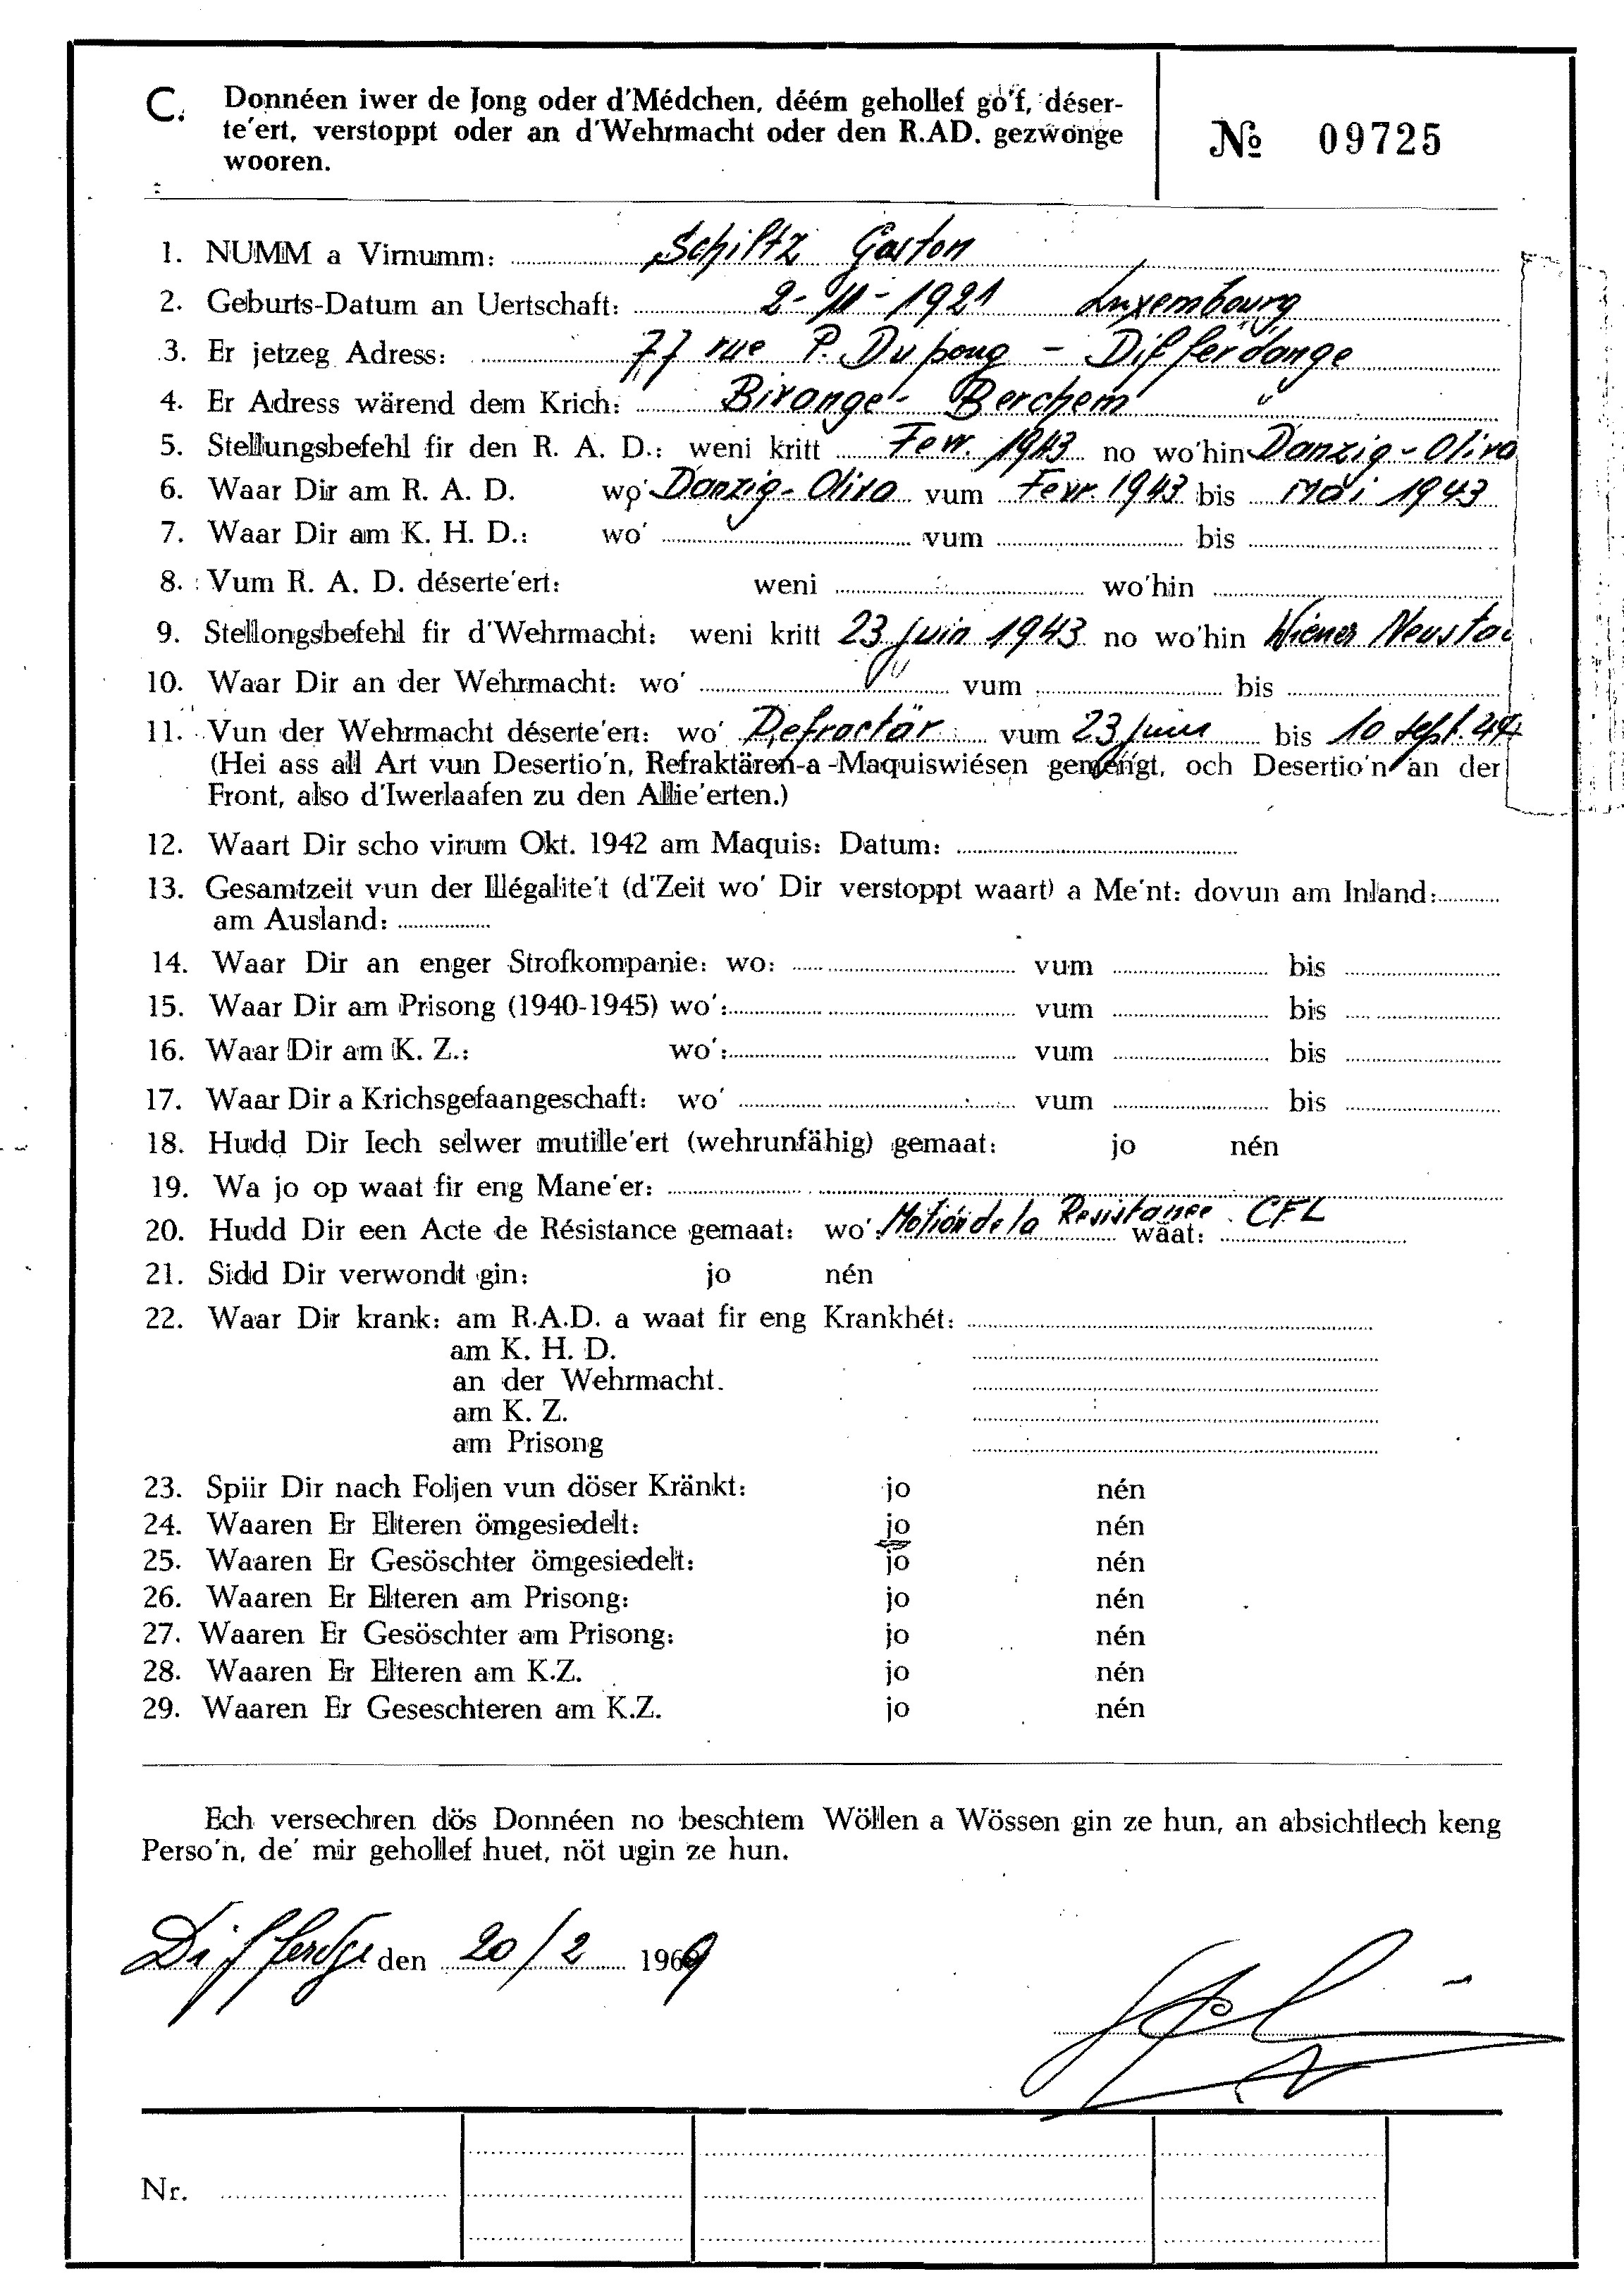 C. Donnéen iwer de Jong oder d'Médchen, déém gehollef go'f, déser-
te'ert, verstoppt oder an d'Wehrmacht oder den R.AD. gezwonge
wooren.
No 09725
1. NUMM a Virnumm: Schiltz Gaston
2. Geburts-Datum an Uertschaft: 2-11-1921 Luxembourg
3. Er jetzeg Adress: 77 rue P. Dupong - Differdange
4. Er Adress wärend dem Krich: Bivange - Berchem "
5. Stellungsbefehl fir den R. A. D.: weni kritt Fevr. 1943 no wo'hin Danzig - Oliva
6. Waar Dir am R. A. D. wo' Danzig - Oliva vum Fevr. 1943 bis Mai 1943
7. Waar Dir am K. H. D.: wo' vum bis
8. Vum R. A. D. déserte'ert: weni wo'hin
9. Stellongsbefehl fir d'Wehrmacht: weni kritt 23 juin 1943 no wo'hin Wiener Neusta
10. Waar Dir an der Wehrmacht: wo' vum bis
11. Vun der Wehrmacht déserte'ert: wo' Refractär vum 23 juin bis 10 sept. 44
(Hei ass all Art vun Desertio'n, Refraktären-a-Maquiswiésen gemengt, och Desertio'n an der
Front, also d'Iwerlaafen zu den Allie'erten.)
12. Waart Dir scho virum Okt. 1942 am Maquis: Datum:
13. Gesamtzeit vun der Illégalite't (d'Zeit wo' Dir verstoppt waart) a Me'nt: dovun am Inland:
am Ausland:
14. Waar Dir an enger Strofkompanie: wo: vum bis
15. Waar Dir am Prisong (1940-1945) wo': vum bis
16. Waar Dir am K. Z.: wo': vum bis
17. Waar Dir a Krichsgefaangeschaft: wo' vum bis
18. Hudd Dir Iech selwer mutille'ert (wehrunfähig) gemaat: jo nén
19. Wa jo op waat fir eng Mane'er:
20. Hudd Dir een Acte de Résistance gemaat: wo': Motion de la Resistance CFL waat:
21. Sidd Dir verwondt gin: jo nén
22. Waar Dir krank: am R.A.D. a waat fir eng Krankhét:
am K. H. D.
an der Wehrmacht.
am K. Z.
am Prisong
23. Spiir Dir nach Foljen vun döser Kränkt: jo nén
24. Waaren Er Elteren ömgesiedelt: jo nén
25. Waaren Er Gesöschter ömgesiedelt: jo nén
26. Waaren Er Elteren am Prisong: jo nén
27. Waaren Er Gesöschter am Prisong: jo nén
28. Waaren Er Elteren am K.Z. jo nén
29. Waaren Er Geseschteren am K.Z. jo nén
Ech versechren dös Donnéen no beschtem Wöllen a Wössen gin ze hun, an absichtlech keng
Perso'n, de' mir gehollef huet, nöt ugin ze hun.
Differdge den 20/2 1969
Nr.